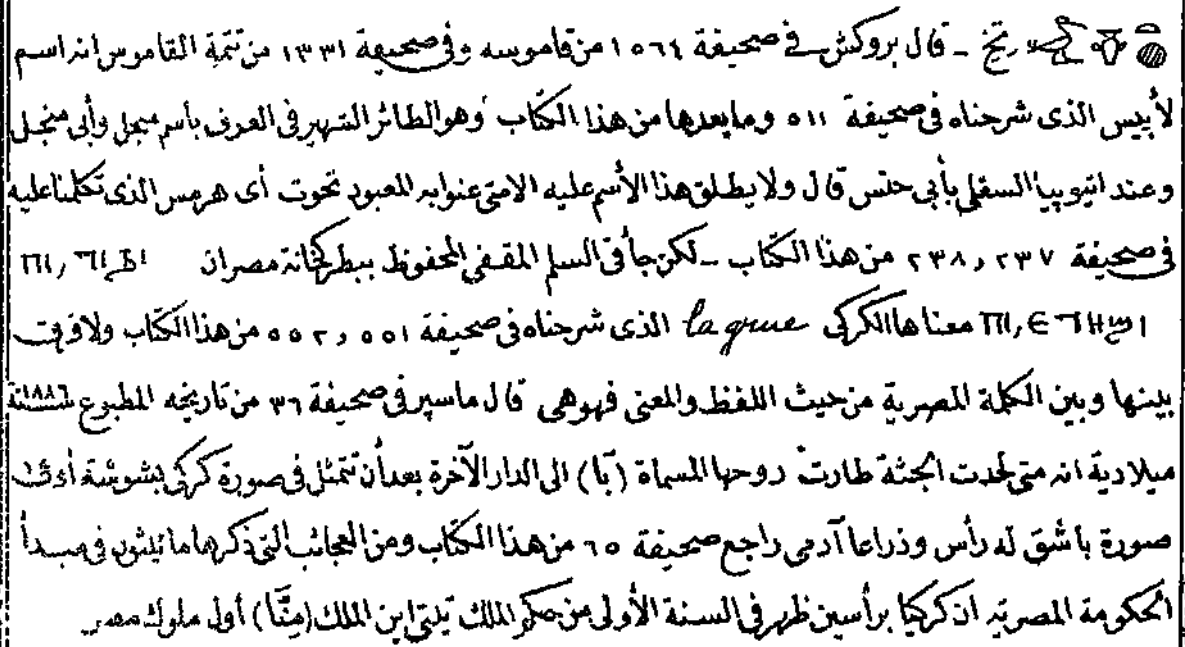 تخ ـ قال بروكش في صحيفة ١٥٦٤ من قاموسه وفي صحيفة ١٣٣١ من تتمة القاموس انه اسم
لأبيس الذى شرحناه فى صحيفة ٥١١ ومابعدها من هذا الكتاب وهو الطائر الشهير فى العرف باسم وأبى منجل
وعند اتيوبيا السفلى بأبى حنس قال ولا يطلق هذا الأسم عليه الامتى عنوابه المعبود تحوت أى هرمس الذى تكلمنا عليه
فى صحيفة ٢٣٧ و ٢٣٨ من هذا الكتاب ـ لكن جآ فى السلم المقفى المحفوظ ببطركخانة مصر ان
معناها الكركى la grue الذى شرحناه فى صحيفة ٥٥١ و ٥٥٢ من هذا الكتاب ولا فرق
بينها وبين الكلمة المصرية من حيث اللفظ والمعنى فهوهى قال ماسپرو فى صحيفة ٣٦ من تاريخه المطبوع سنة ١٨٨٦
ميلادية انه متى لحدت الجثة طارت روحها المسماة (بَا) الى الدار الآخرة بعد أن تتمثل فى صورة كركى بشوشة أو فى
صورة باشق له رأس وذراعا آدمى راجع صحيفة ٦٥ من هذا الكتاب ومن العجائب التى ذكرها مانيثون فى مبدأ
الحكومة المصرية ان كركيا برأسين ظهر فى السنة الأولى من حكم الملك تيتى ابن الملك (مِنَّا) أول ملوك مصر